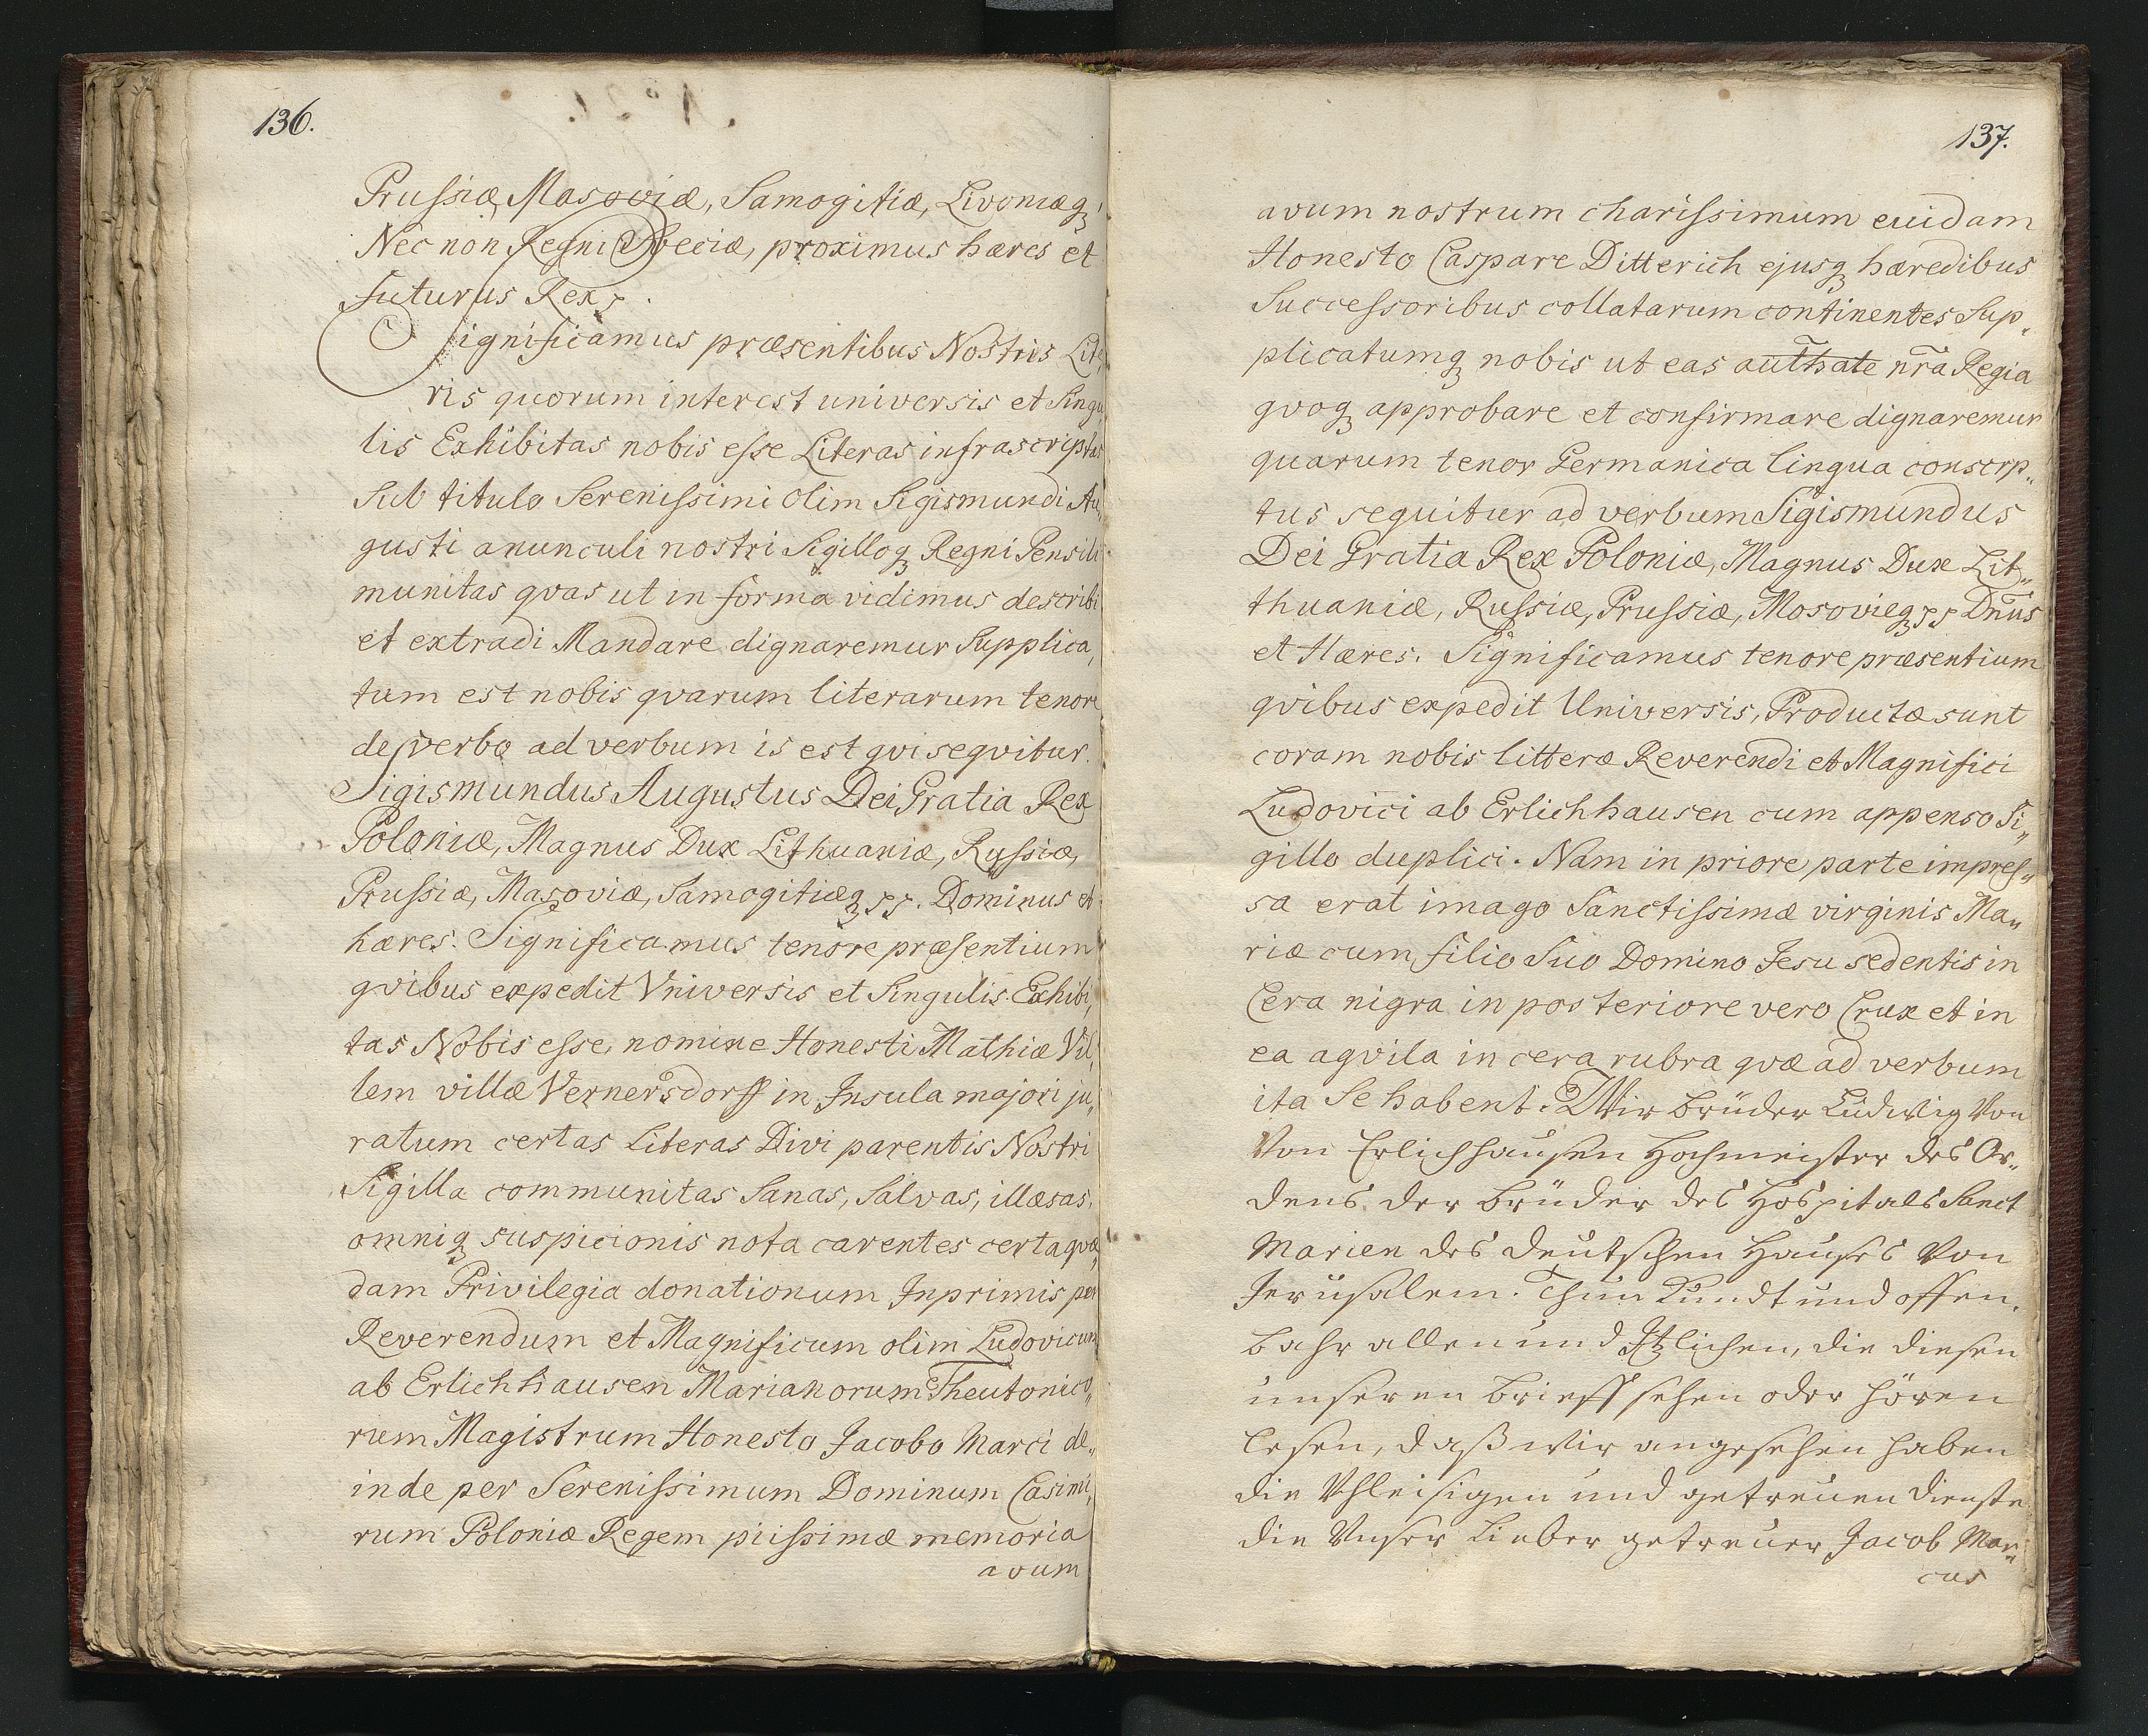 136.
Prussiæ, Masoviæ, Samogitiæ, Livoniæq́
Nec non Regni Sveciæ, proximus hæres et
futurus Rex
Significamus præsentibus Nostris Lite,
ris quorum interest universis et Singu,
lis Exhibitas nobis esse Literas infrascriptas
Sub titulo Serenissimi olim Sigismundi Au,
gusti avunculi nostri Sigilloq́ Regni Pensili
munitas qvas ut in forma vidimus describi
et extradi Mandare dignaremur Supplica,
tum est nobis qvarum literarum tenore
de verbo ad verbum is est qvi seqvitur.
Sigismundus Augustus Dei Gratia Rex
Poloniæ, Magnus Dux Lithuaniæ, Russiæ,
Prussiæ, Masoviæ, Samogitiæq́ pp. Dominus et
hæres. Significamus tenore præsentium
qvibus expedit Vniversis et Singulis. Exhibi,
tas Nobis esse, nomine Honesti Mathiæ Vil,
lem villæ Vernersdorff in Insula majori ju,
ratum certas Literas Divi parentis Nostri
Sigilla communitas Sanas, Salvas, illæsas,
omniq́ suspicionis nota carentes certa qvæ,
dam Privilegia donationum Inprimis per
Reverendum et Magnificum olim Ludovicum
ab Erlichhausen Marianorum Theutonico,,
rum Magistrum Honesto Jacobo Marci de,,
inde per Serenissimum Dominum Casimi,
rum Poloniæ Regem piissimæ memoria
avum
137.
avum nostrum charissimum cuidam
Honesto Caspare Ditterich ejusq́ hæredibus
Successoribus collatarum continentes Sup,,
plicatumq́ nobis ut eas authate nra Regia
qvoq́ approbare et confirmare dignaremur
quarum tenor Germanica lingua conscrp,,
tus sequitur ad verbum Sigismundus
Dei Gratia Rex Poloniæ, Magnus Dux Lit,,
thuaniæ, Russiæ, Prussiæ, Mosovieq́ pp Dnus
et Hæres. Significamus tenore præsentium
qvibus expedit Universis, Productæ sunt
coram nobis litteræ Reverendi et Magnifici
Ludovici ab Erlichhausen cum appenso Si,,
gillo duplici. Nam in priore parte impres,,
sa erat imago Sanctissimæ virginis Ma,,
riæ cum filio Suo Domino Jesu sedentis in
Cera nigra in posteriore vero Crux et in
ea aqvila in cera rubra qvæ ad verbum
ita Se habent. Wir brüder Ludwig Von
Von Erlichhausen Hochmeister des Or,,
dens der brüder des Hospitals Sanct
Marien des deutschen Hauses Von
Jerusalem. Thun Kundt und offen,
bahr allen und Itzlichen, die diesen
unseren brieff sehen oder hören
lesen, daß wir angesehen haben
die Vhleisigen und getreuen dienste
die Vnser lieber getreuer Jacob Mar,,
cus